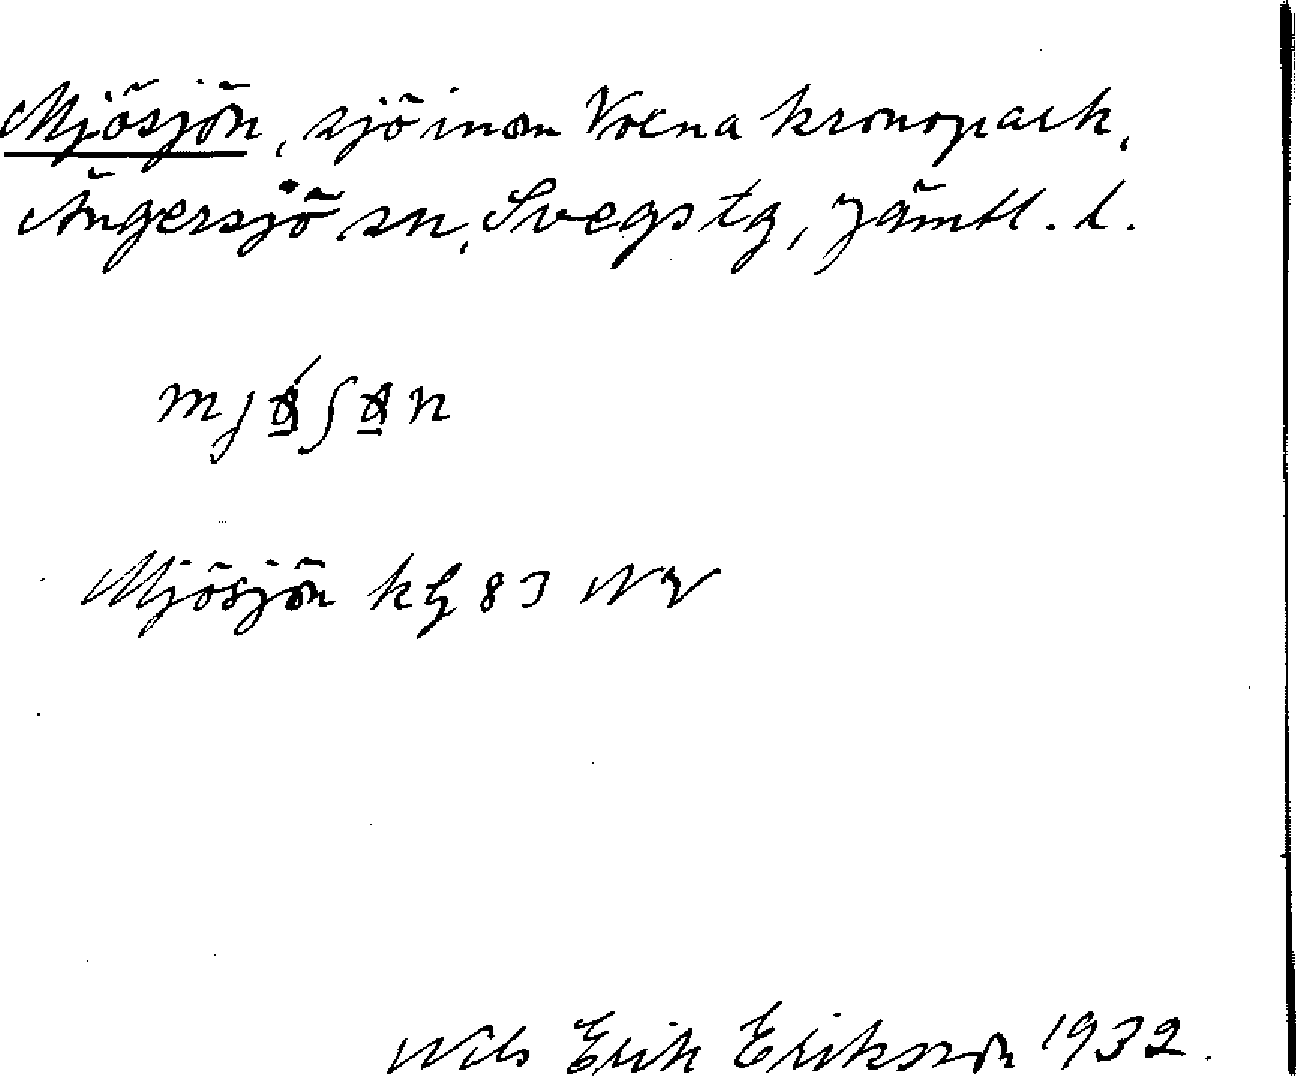 Mjösjön, sjö inom Voxna kronopark,
Ängersjö sn, Svegs tg, Jämtl. l.
Mjösjön kbl 83 NV
Nils Erik Eriksson 1932.